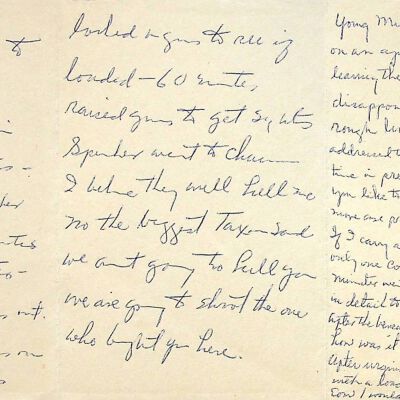 to
looked in guns to see if
loaded — 60 minutes,
raised guns to get sights
Speaker went to chair —
I believe they will kill me
no the biggest Texan said
we aint going to kill you
we are going to shoot the one
who brought you here.
Young Mi
on an ap
leaving the
disappoin
rough lu
addressed t
time in pre
you like to
more one pr
If I carry a
only one co
minutes we
in detail to
after the
how was it
after urgin
with a loa
Son I would